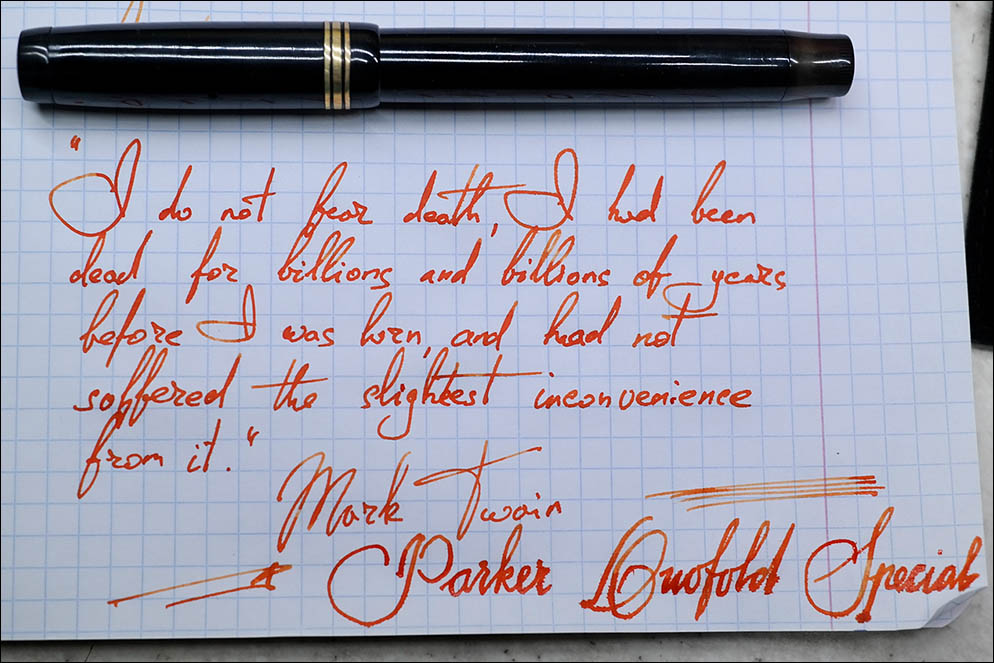 "I do not fear death, I had been
dead for billions and billions of years
before I was born, and had not
soffered the slightest inconvenience
from it."
Mark Twain
Parker Duofold Special